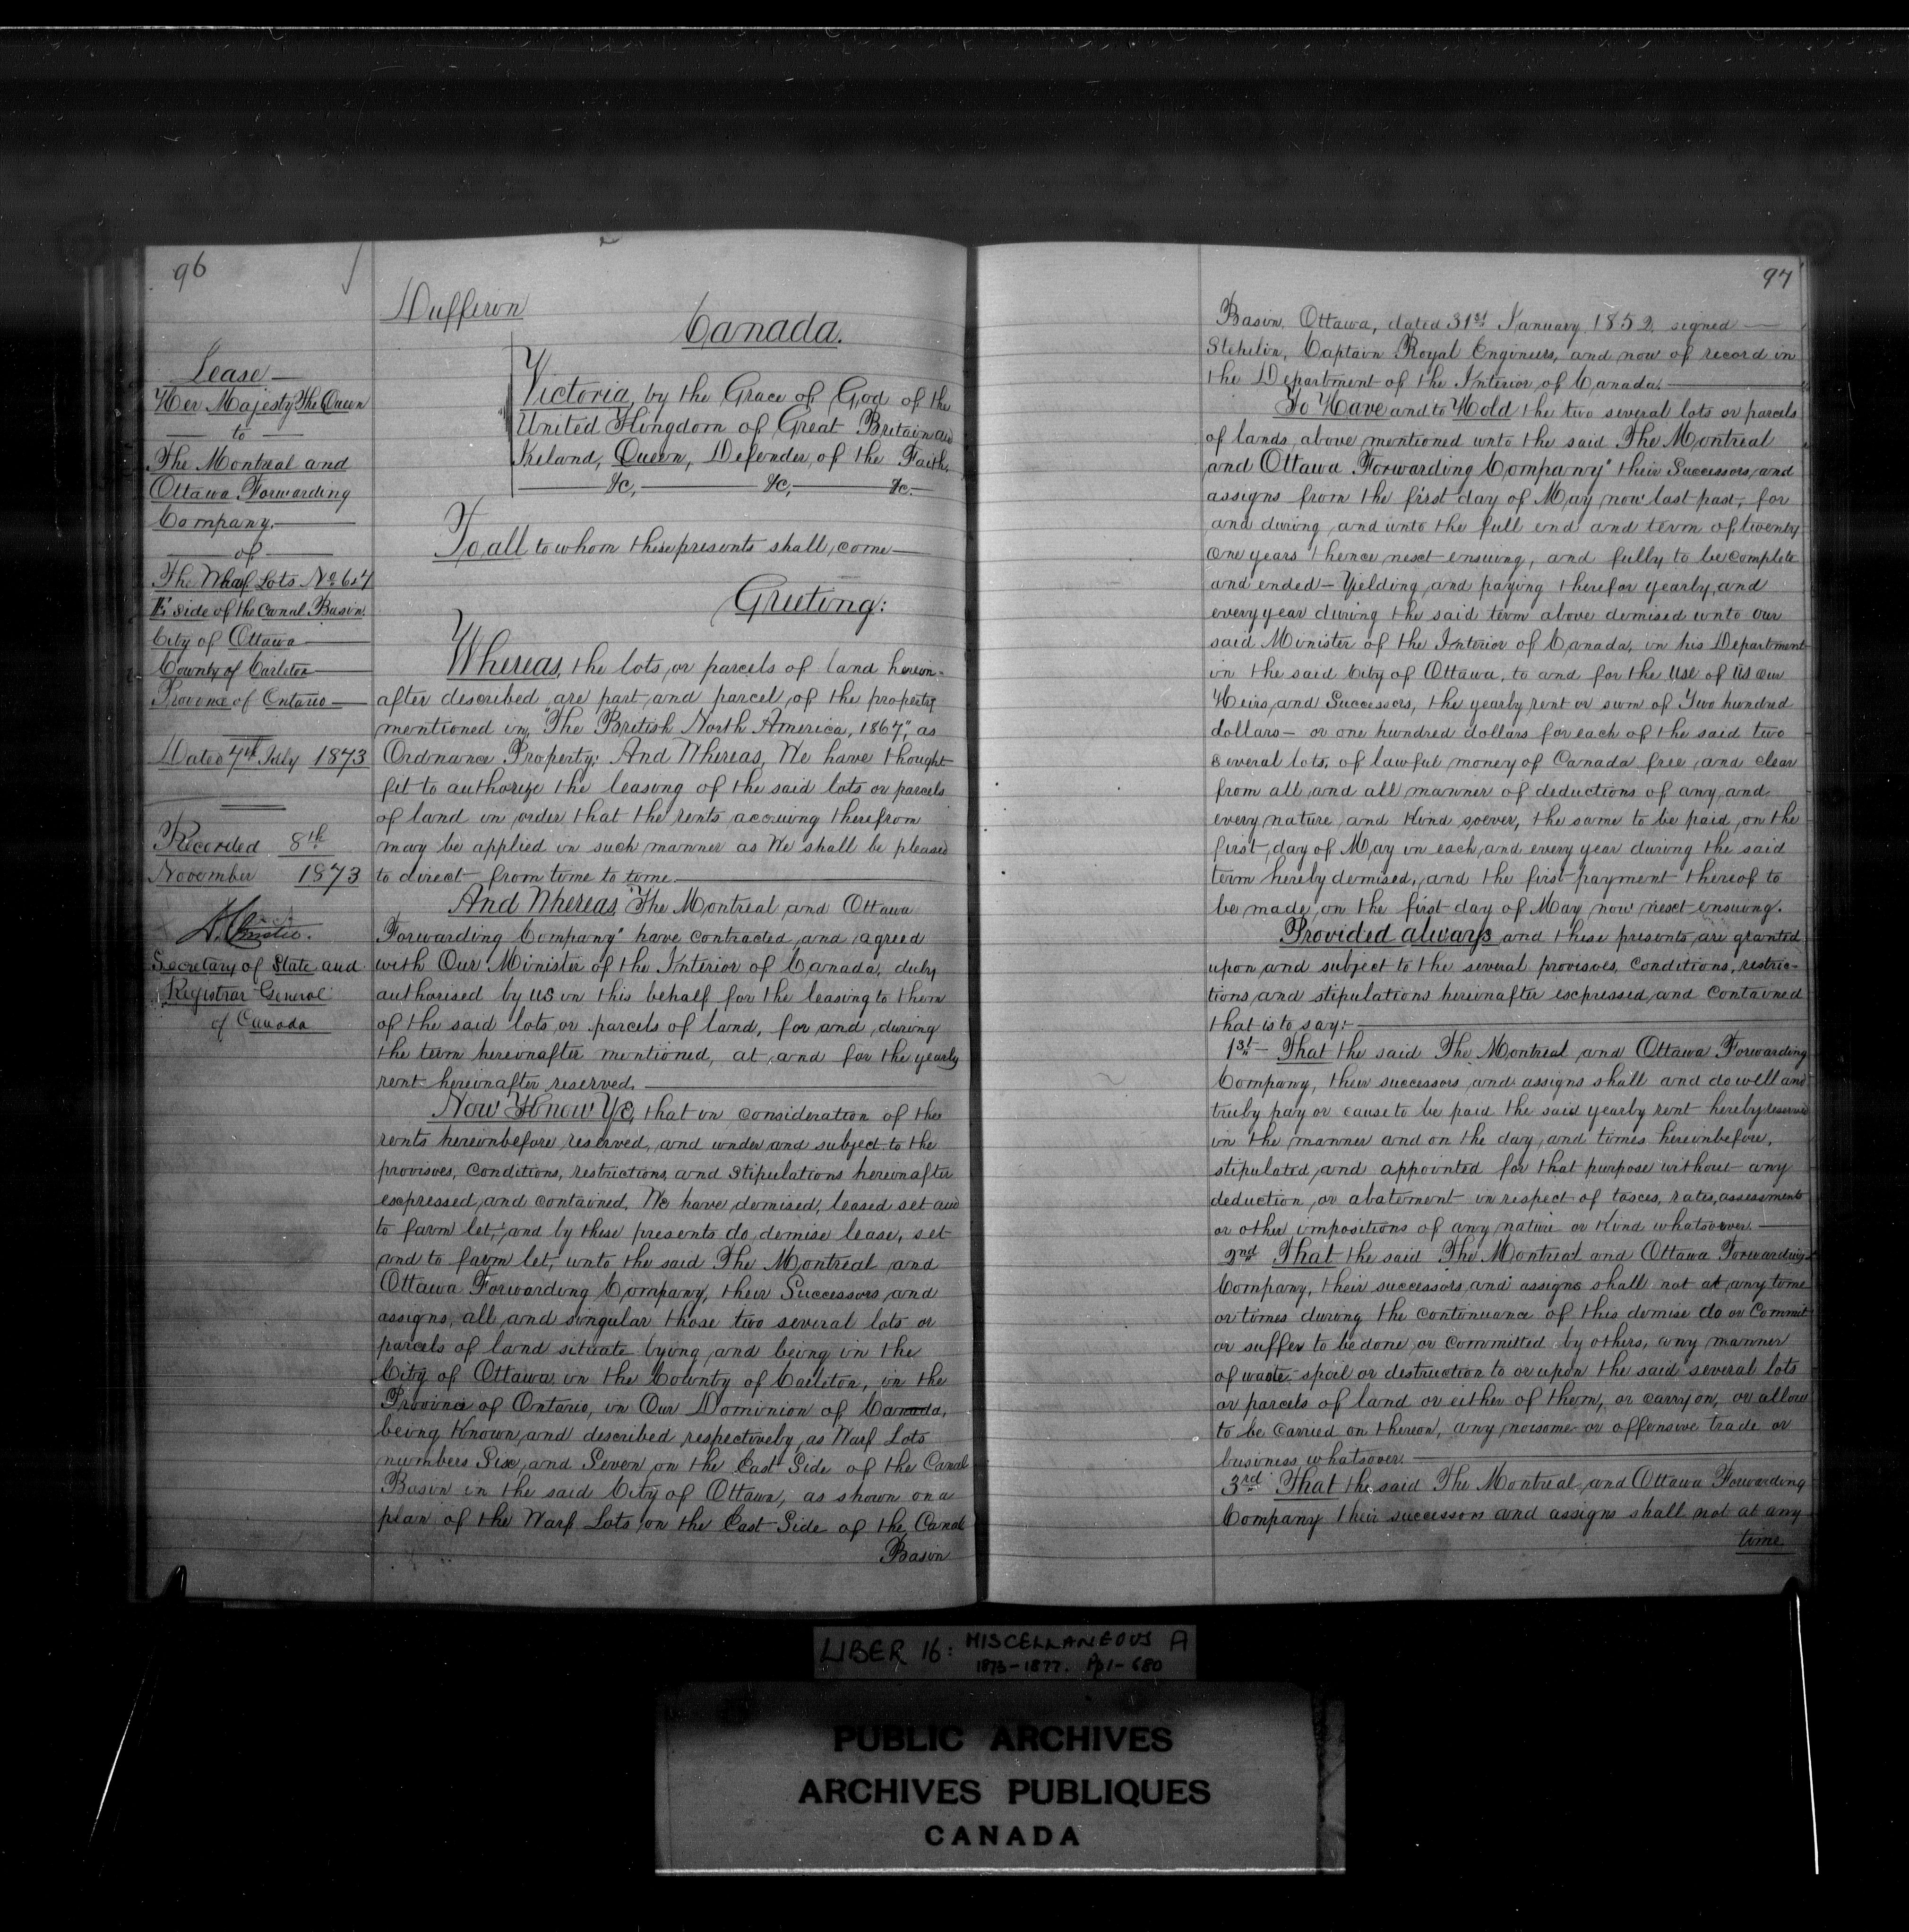 96
Lease.
Her Majesty The Queen
to
The Montreal and
Ottawa Forwarding
Company.
of
The Wharf Lots No 6 & 7
E side of the Canal Basin.
City of Ottawa
County of Carleton
Province of Ontario
Dated 7th July 1873
Recorded 8th
November 1873
Secretary of State and
Registrar General
of Canada
Dufferin
Canada.
Victoria, by the Grace of God of the
United Kingdom of Great Britain and
Ireland, Queen, Defender of the Faith,
&c, &c, &c.
To all to whom these presents shall come
Greeting:
Whereas, the lots or parcels of land herein-
after described are part and parcel of the property
mentioned in, "The British North America, 1867", as
Ordnance Property: And Whereas, We have thought
fit to authorize the leasing of the said lots or parcels
of land in order that the rents accruing therefrom
may be applied in such manner as We shall be pleased
to direct from time to time.
And Whereas, "The Montreal and Ottawa
Forwarding Company" have contracted and agreed
with Our Minister of the Interior of Canada, duly
authorised by us in this behalf for the leasing to them
of the said lots or parcels of land, for and during
the term hereinafter mentioned, at and for the yearly
rent hereinafter reserved.
Now Know Ye, that in consideration of the
rents hereinbefore reserved, and under and subject to the
provisoes, conditions, restrictions, and stipulations hereinafter
expressed and contained, We have demised, leased set and
to farm let, and by these presents do demise lease, set
and to farm let, unto the said The Montreal and
Ottawa Forwarding Company, their Successors and
assigns, all and singular those two several lots or
parcels of land situate lying and being in the
City of Ottawa, in the County of Carleton, in the
Province of Ontario, in Our Dominion of Canada,
being known and described respectively as Warf Lots
numbers Six and Seven on the East Side of the Canal
Basin in the said City of Ottawa, as shown on a
plan of the Warf Lots on the East Side of the Canal
Basin
97
Basin, Ottawa, dated 31st January 1852, signed
Stehelin, Captain Royal Engineers, and now of record in
the Department of the Interior of Canada.
To Have and to Hold the two several lots or parcels
of lands above mentioned unto the said The Montreal
and Ottawa Forwarding Company" their Successors and
assigns from the first day of May now last past, for
and during and unto the full end and term of twenty
one years thence next ensuing, and fully to be complete
and ended – Yielding and paying therefor yearly and
every year during the said term above demised unto our
said Minister of the Interior of Canada, in his Department
in the said City of Ottawa, to and for the Use of Us Our
Heirs and Successors, the yearly rent or sum of Two hundred
dollars – or one hundred dollars for each of the said two
several lots, of lawful money of Canada free and clear
from all and all manner of deductions of any and
every nature and kind soever, the same to be paid, on the
first day of May in each and every year during the said
term hereby demised, and the first payment thereof to
be made, on the first day of May now next ensuing.
Provided always and these presents are granted
upon and subject to the several provisoes, conditions, restric-
tions and stipulations hereinafter expressed and contained
that is to say:-
1st – That the said The Montreal and Ottawa Forwarding
Company, their successors and assigns shall and do well and
truly pay or cause to be paid the said yearly rent hereby reserved
in the manner and on the day and times hereinbefore,
stipulated and appointed for that purpose without any
deduction or abatement in respect of taxes, rates, assessments
or other impositions of any nature or kind whatsoever.
2nd That the said The Montreal and Ottawa Forwarding
Company, their successors and assigns shall not at any time
or times during the continuance of this demise do or Commit
or suffer to be done or committed by others, any manner
of waste, spoil or destruction to or upon the said several lots
or parcels of land or either of them, or carry on, or allow
to be carried on thereon, any noisome or offensive trade or
business whatsover.
3rd That the said The Montreal and Ottawa Forwarding
Company their successors and assigns shall not at any
time
LIBER 16: MISCELLANEOUS A
1873-1877. Pp 1-680
PUBLIC ARCHIVES
ARCHIVES PUBLIQUES
CANADA